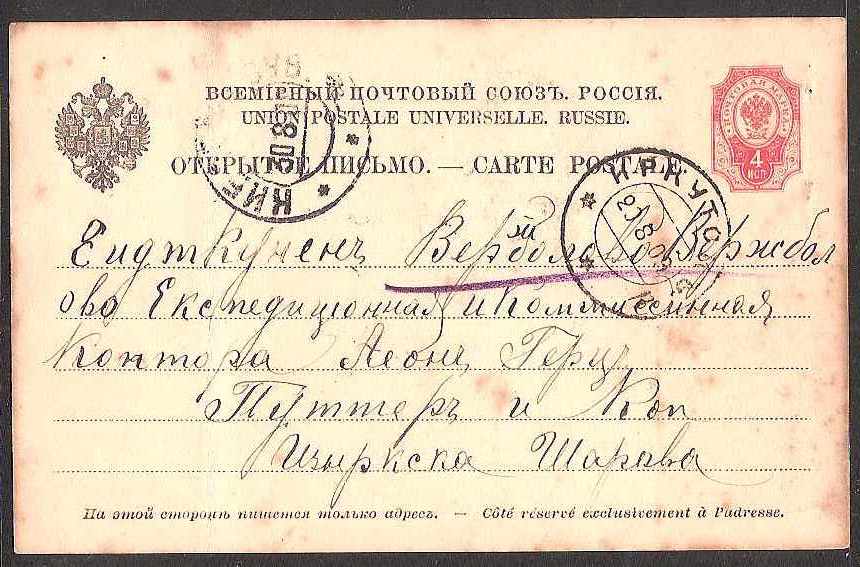 ВСЕМІРНЫЙ ПОЧТОВЫЙ СОЮЗЪ. РОССІЯ.
UNION POSTALE UNIVERSELLE. RUSSIE.
ОТКРЫТОЕ ПИСЬМО. — CARTE POSTALE.
ПОЧТОВАЯ МАРКА
4
КОП
ИРКУТС
30 8
Еидткуненъ Вержболово Вержбол
ово Експедиціонная и Коммисіинная
Контора Леонъ Герц
Туттеръ и Коп
На этой сторонѣ пишется только адресъ. — Côté réservé exclusivement à l'adresse.